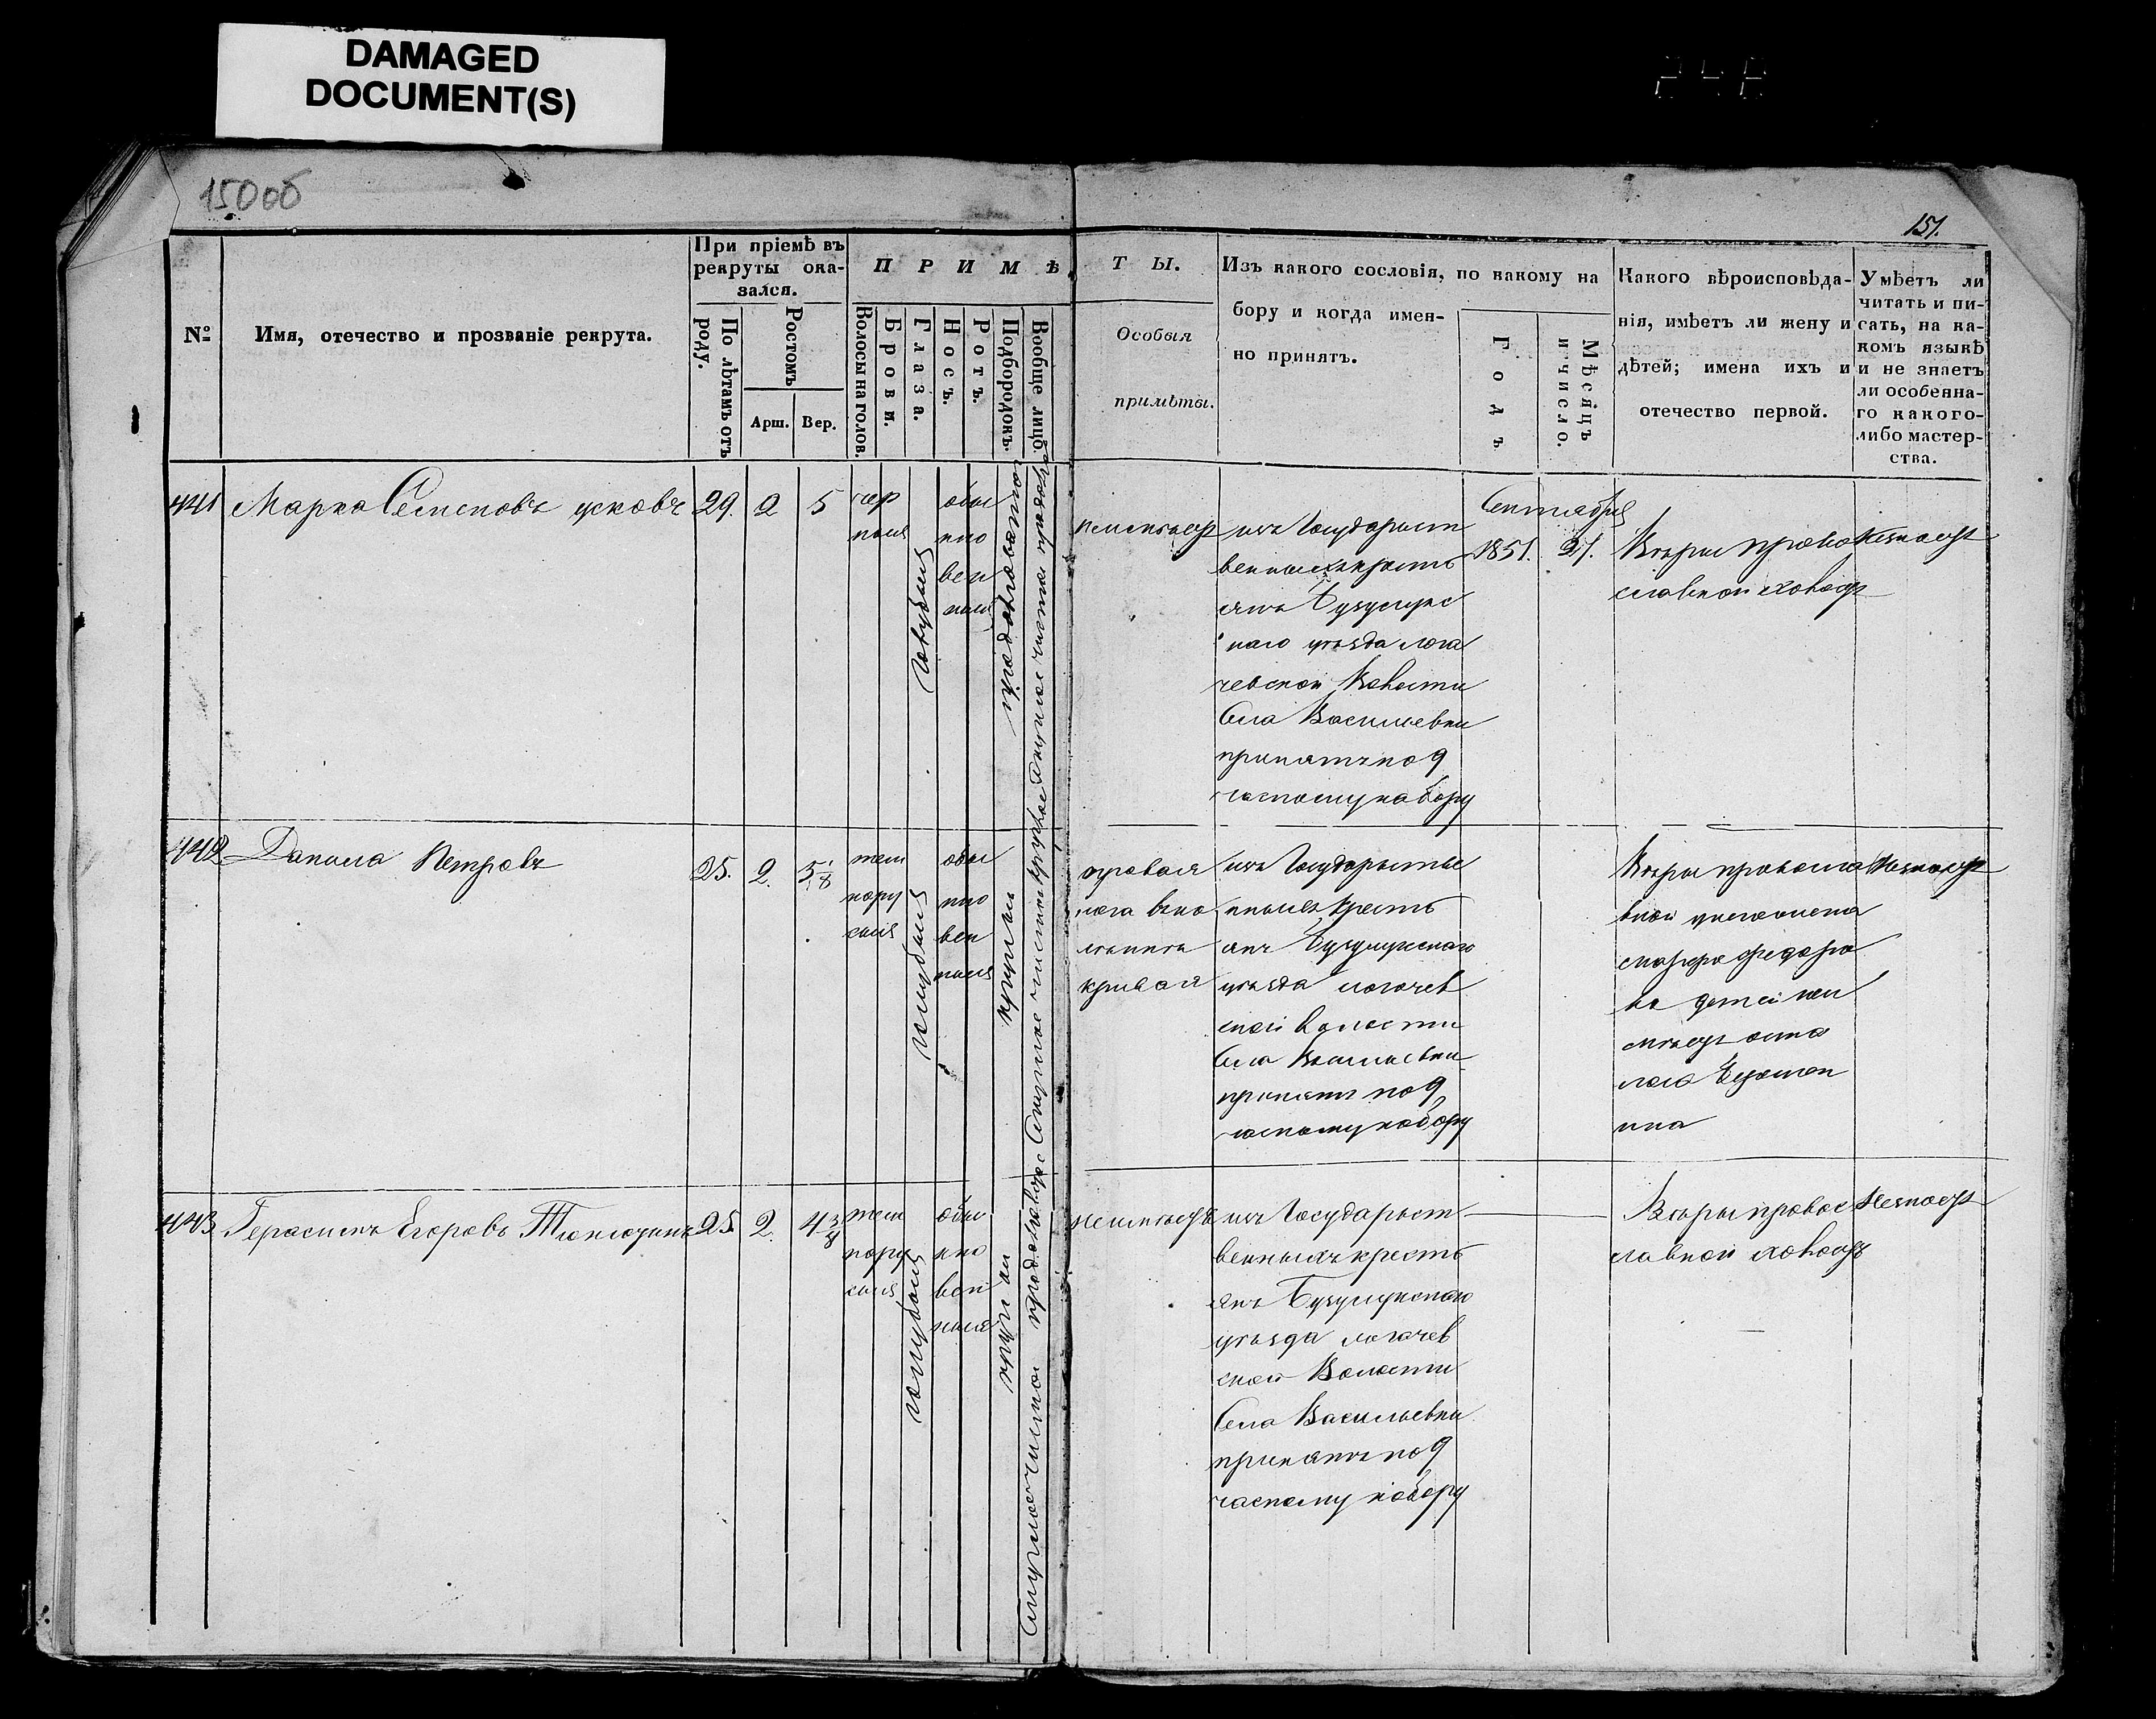 DAMAGED
DOCUMENT(S)
150об
151.
№
Имя, отечество и прозваніе рекрута.
При пріемѣ въ
рекруты ока-
зался.
По лѣтамъ отъ
роду.
Ростомъ
Арш.
Вер.
ПРИМѢ
Волосы на голов.
Брови.
Глаза.
Носъ.
Ротъ.
Подбородокъ.
Вообще лицо.
ТЫ.
Особыя
примѣты.
Изъ какого сословія, по какому на
бору и когда имен-
но принятъ.
Годъ
Мѣсяцъ
и число.
Какого вѣроисповѣда-
нія, имѣетъ ли жену и
дѣтей; имена ихъ и
отечество первой.
Умѣетъ ли
читать и пи-
сать, на ка-
комъ языкѣ
и не знаетъ
ли особенна-
го какого-
либо мастер-
ства.
441
Марка Семеновъ усковъ
29.
2
5
чер
ныя
обы
кно
вен
ныя
неимѣетъ
изъ Государст
венныхъ кресть
янъ Бузулукс
каго уѣзда лога
чевской Волости
Села Васильевки
принятъ по 9
частному набору
Сентября
1851.
27.
Вѣры право
славной холостъ
Незнаетъ
442
Данила Петровъ
25.
2.
5 1/8
тем
нору
сыя
голубыя
обы
кно
вен
ныя
круглый
правая
нога вко
лѣнкѣ
кривая
изъ Государстве
нныхъ Кресть
янъ Бузулукскаго
уѣзда логачев
ской Волости
Села Васильевки
принятъ по 9
частному набору
Вѣры правосла
вной
детей неи
мѣетъ
Незнаетъ
443
Герасимъ Егоровъ Тюнюзинъ
25
2.
4 3/8
тем
нору
сыя
голубыя
обы
кно
вен
ныя
круглый
неимѣетъ
изъ Государст
венныхъ кресть
янъ Бузулукскаго
уѣзда логачев
ской Волости
Села Васильевки
принятъ по 9
часному набору
Вѣры правос
лавной холостъ
Незнаетъ